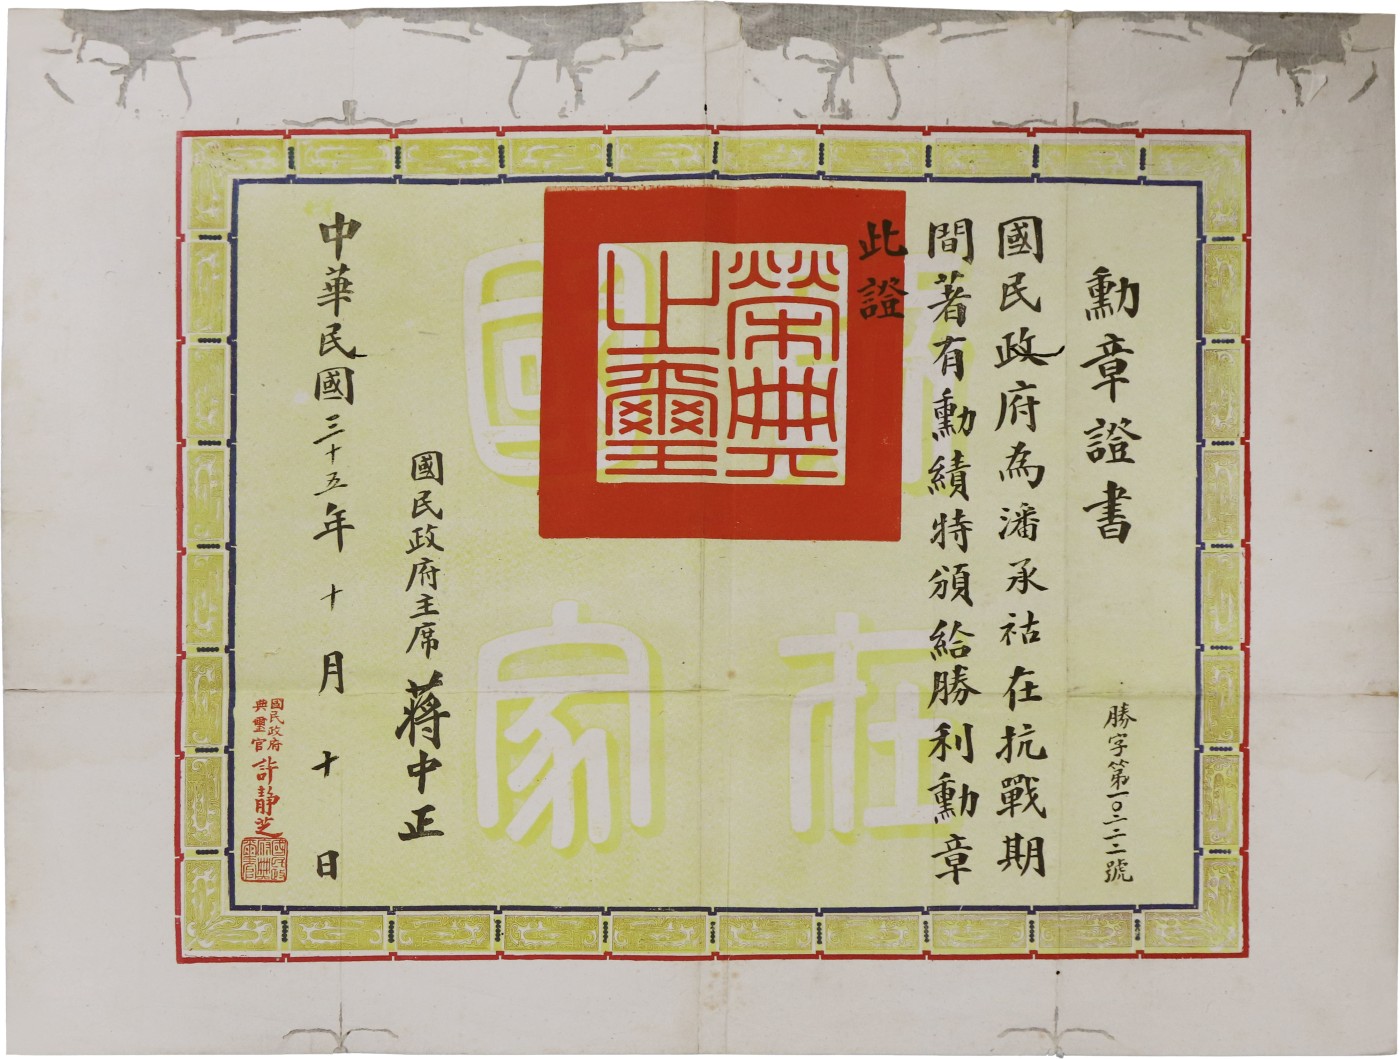 勳章證書
勝字第一〇二二二號
國民政府為潘承祜在抗戰期
間著有勳績特頒給勝利勳章
此證
榮典
之璽
在
國家
國民政府主席蔣中正
中華民國三十五年十月十日
國民政府
典璽官
許靜芝